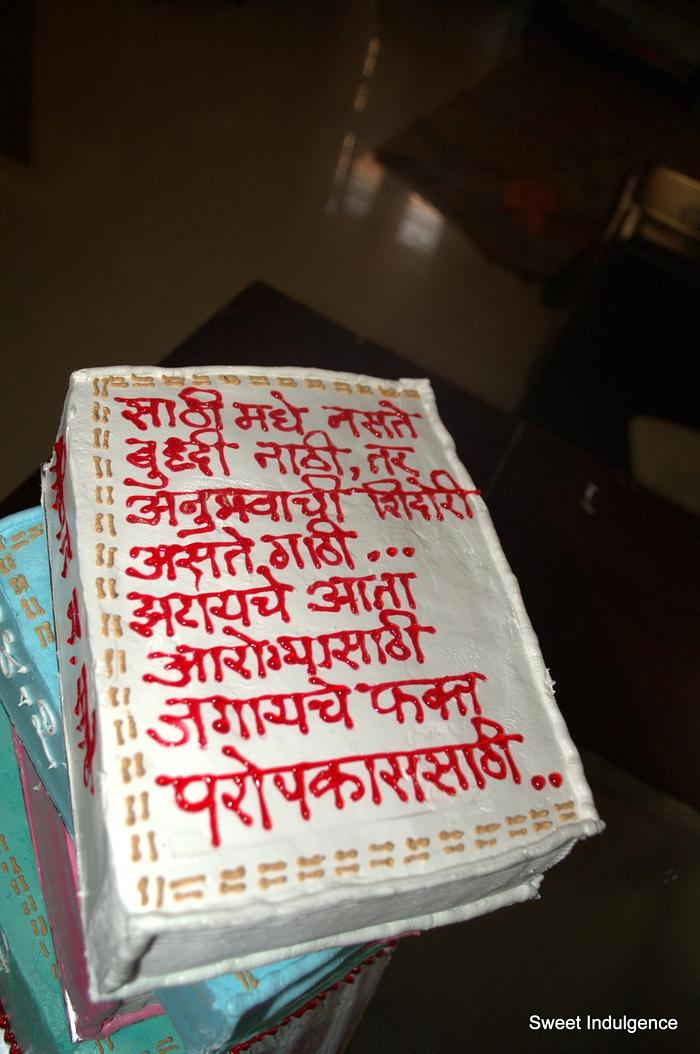 साठी मधे नसते
बुध्दी नाठी, तर
अनुभवाची शिदोरी
असते गाठी ...
झटायचे आता
आरोग्यासाठी
जगायचे फक्त
परोपकारासाठी..
Sweet Indulgence